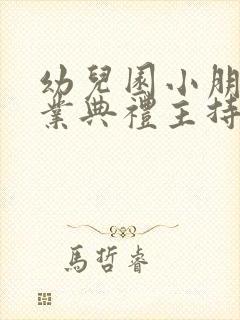 幼兒園小朋
業典禮主持
馬哲睿